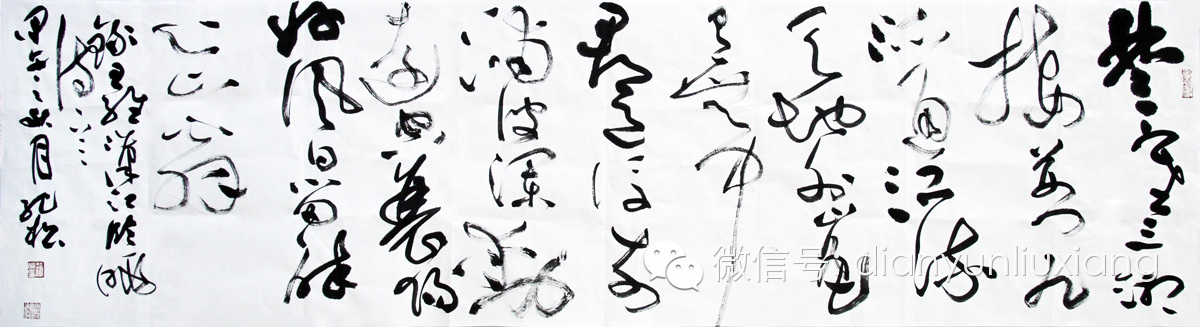 楚塞三湘
接荊門九
派通江流
天地外山色
有無中
郡邑浮前
浦波瀾動
遠空襄陽
好風日留醉
与山翁
錄王維漢江臨眺
詩
甲午之秋月
微信号: dianyunliuxiang